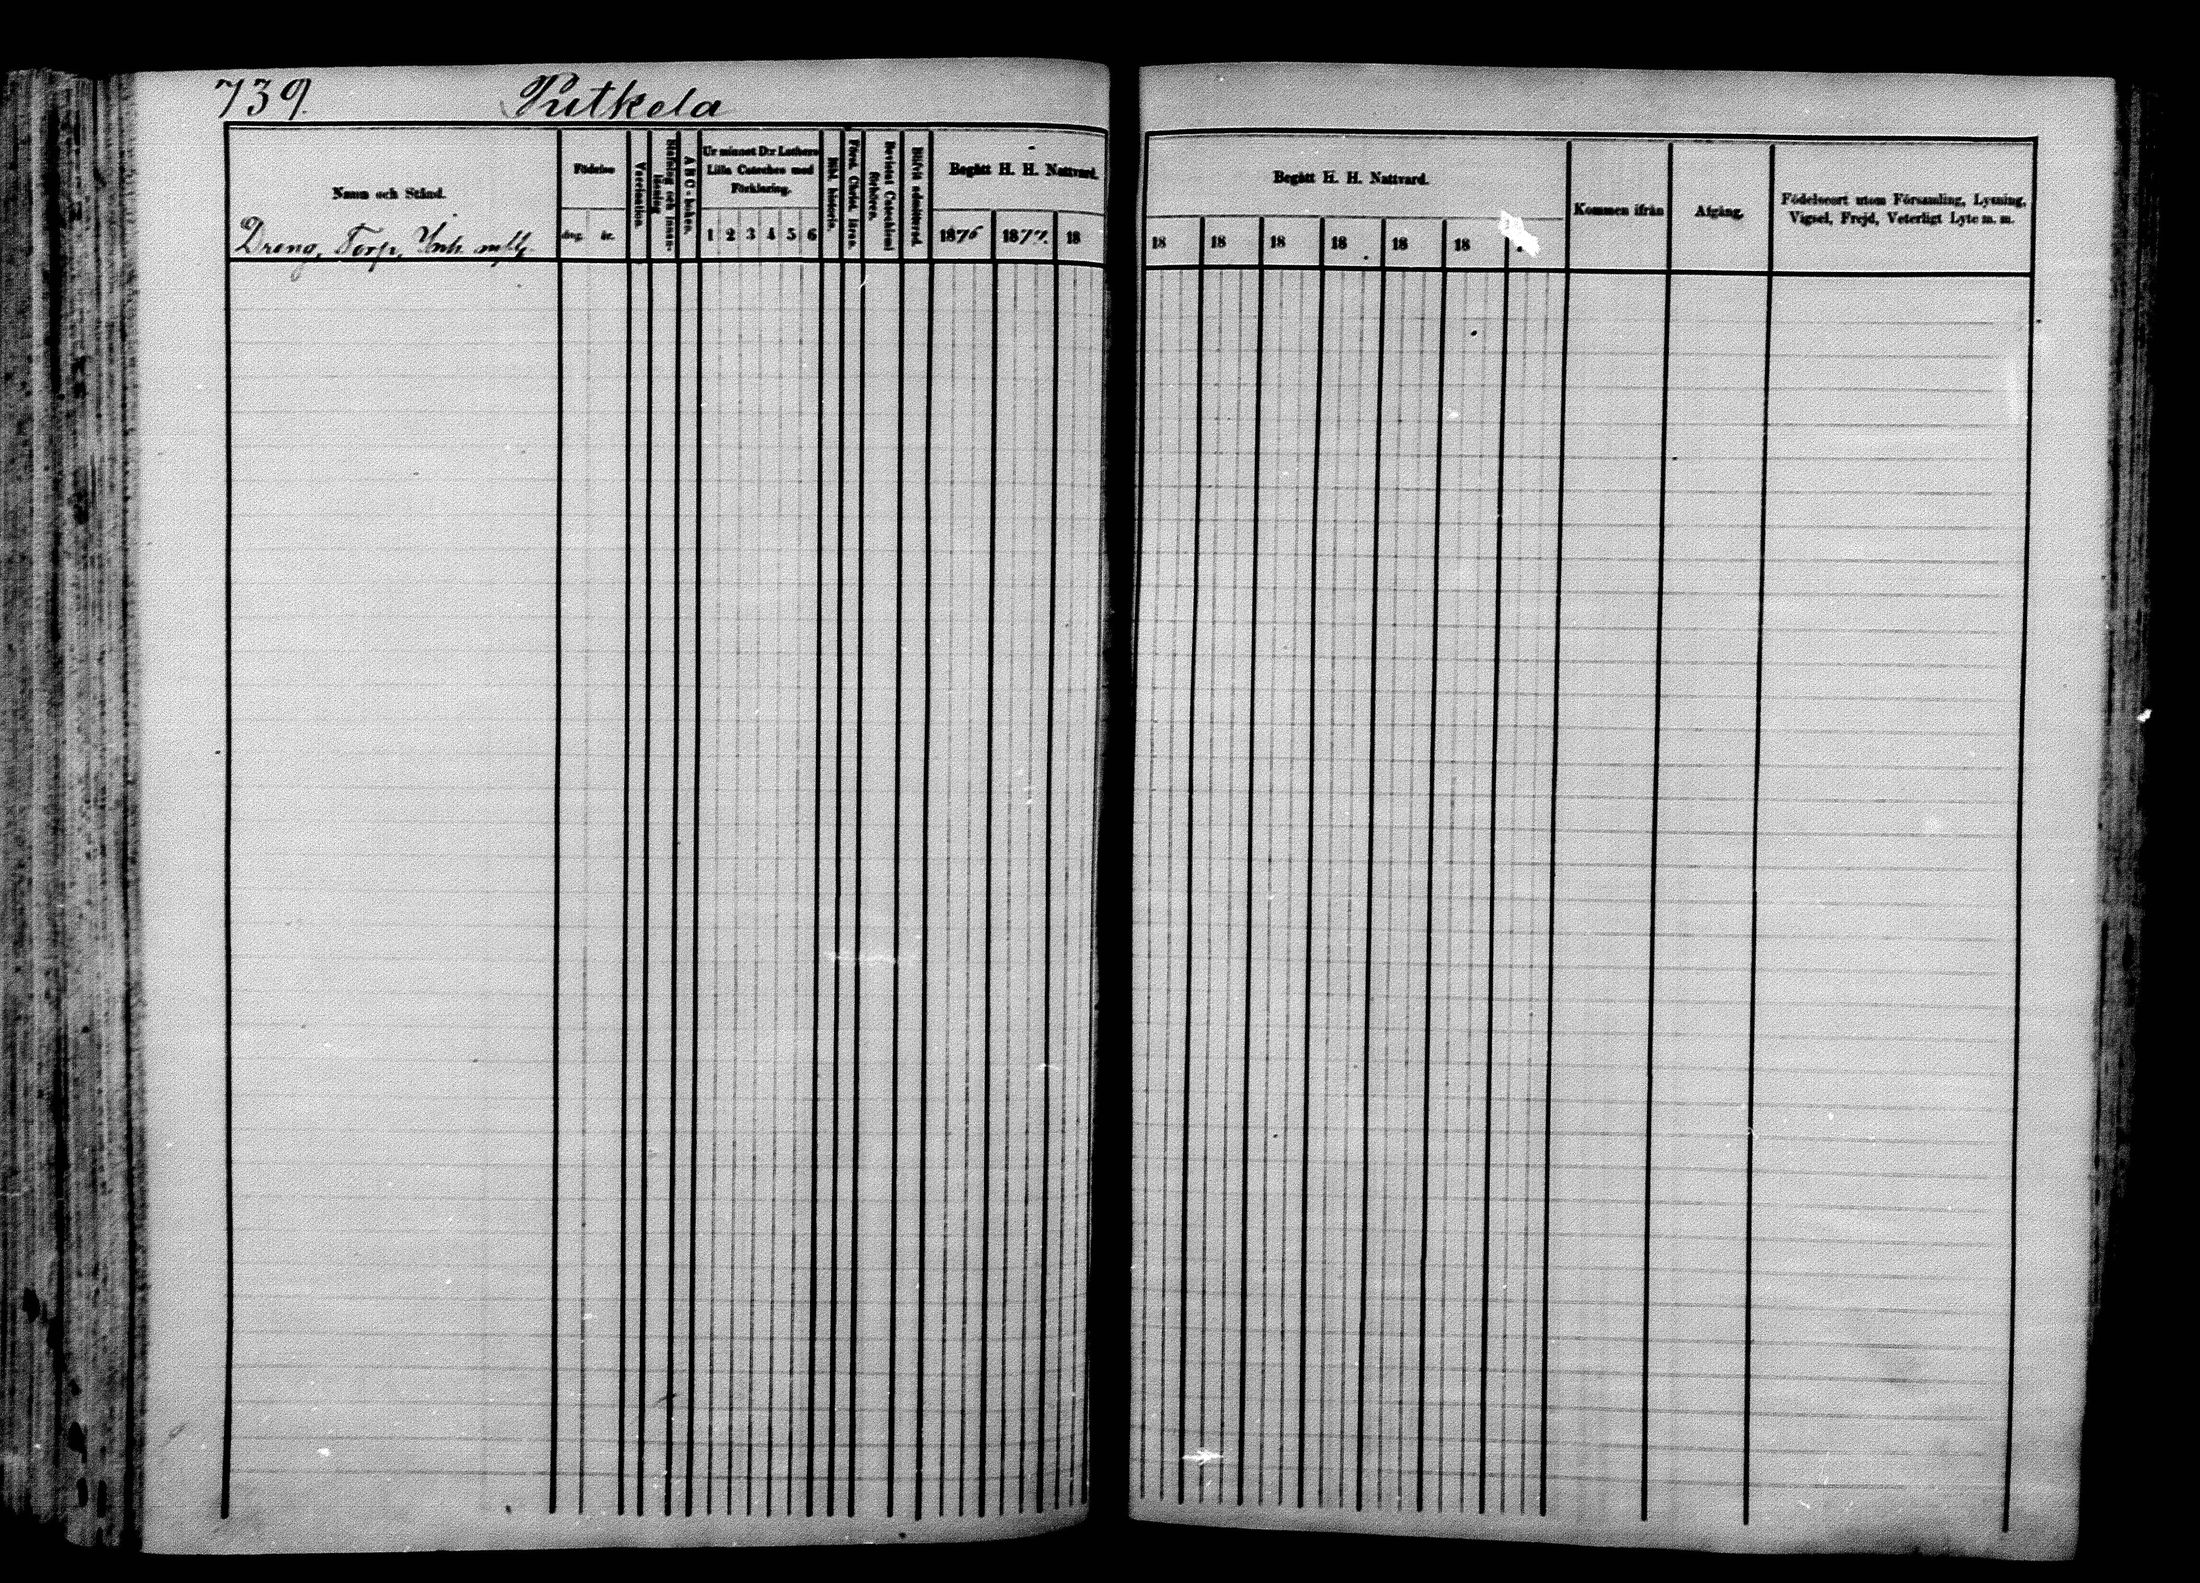 739. Putkela
Namn och Stånd.
Dreng, Torp, Inh.
Födelse
dag. år.
Vaccination.
Stafning och innan-
läsning
A B C-boken.
Ur minnet D:r Luthers
Lilla Cateches med
Förklaring.
1 2 3 4 5 6
Bibl. historie.
Först. Christ. läran.
Bevistat Catechismi
förhören.
Blifvit admitterad.
Begått H. H. Nattvard.
1876 1877. 18
Begått H. H. Nattvard.
18 18 18 18 18 18
Kommen ifrån
Afgång.
Födelseort utom Församling, Lysning,
Vigsel, Frejd, Veterligt Lyte m. m.